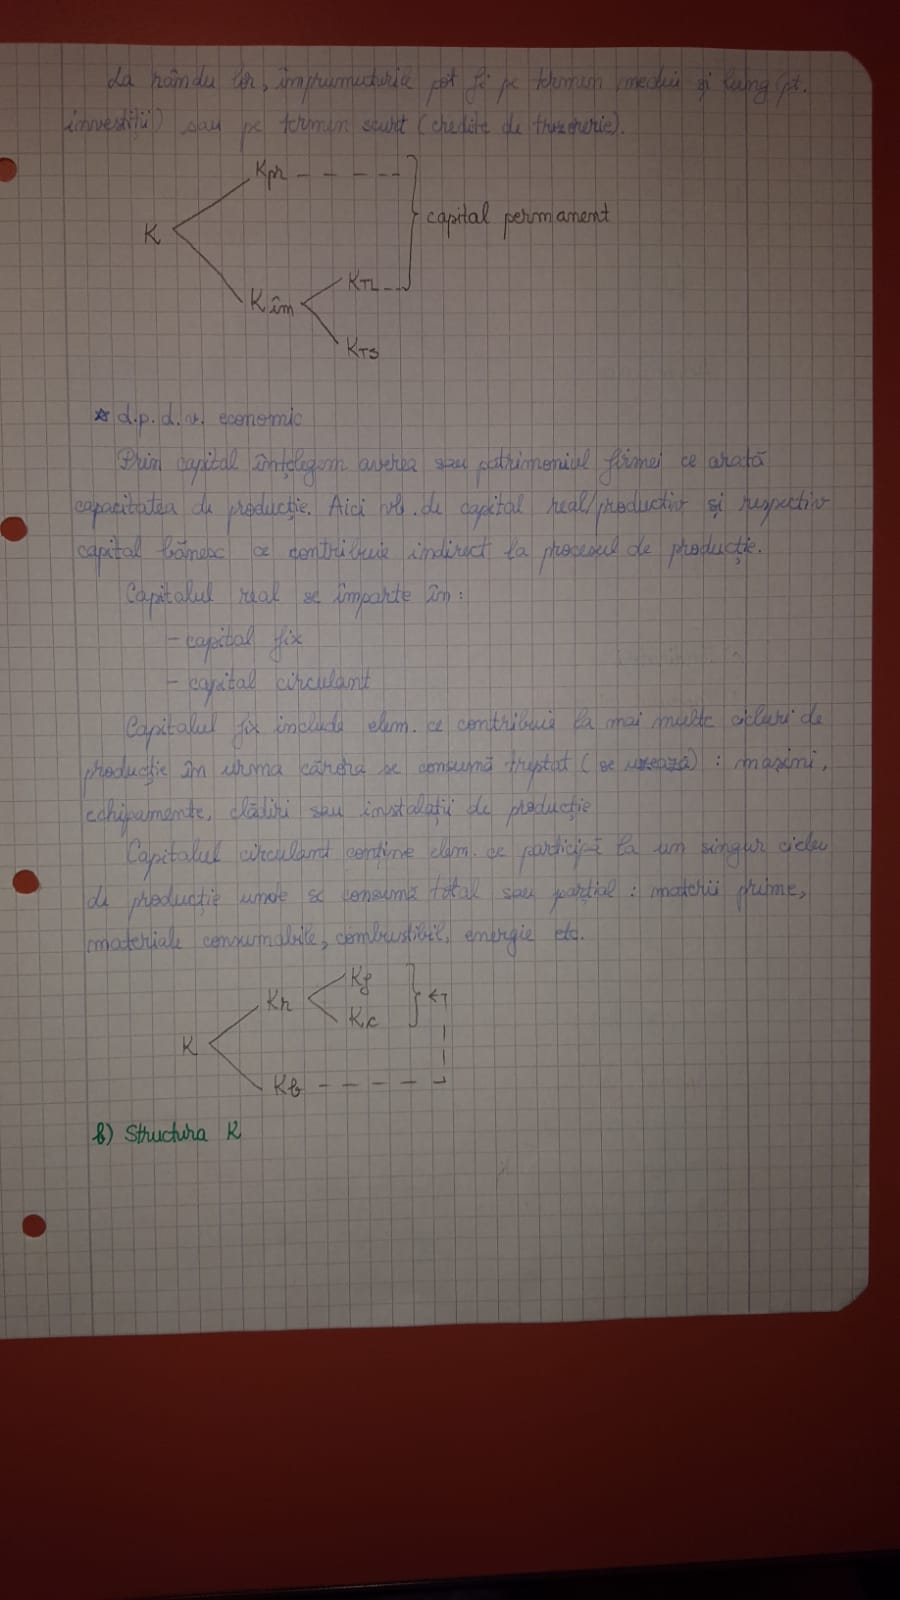 La rândul lor, împrumuturile pot fi pe termen mediu și lung (pt.
investiții) sau pe termen scurt (credite de trezorerie).
Kpr
K
capital permanent
KTL
Kîm
KTS
* d.p.d.v. economic
Prin capital înțelegem averea sau patrimoniul firmei ce arată
capacitatea de producție. Aici vb. de capital real/productiv și respectiv
capital bănesc ce contribuie indirect la procesul de producție.
Capitalul real se împarte în:
- capital fix
- capital circulant
Capitalul fix include elem. ce contribuie la mai multe cicluri de
producție în urma cărora se consumă treptat (se uzează) : mașini,
echipamente, clădiri sau instalații de producție
Capitalul circulant conține elem. ce participă la un singur ciclu
de producție unde se consumă total sau parțial : materii prime,
materiale consumabile, combustibil, energie etc.
Kf
Kr
Kc
K
Kb
b) Structura K